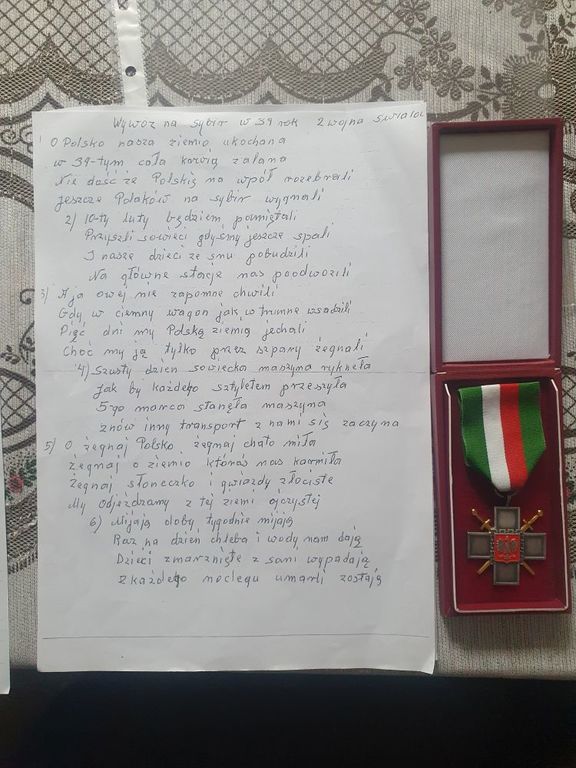 Wywoz na sybir w 39 rok 2 wojna światow
1 O Polsko nasza ziemio ukochana
w 39-tym cała krwią zalana
Nie dość że Polskię na wpół rozebrali
jeszcze Polaków na sybir wygnali
2) 10-ty luty będziem pomiętali
Przyszli sowieci gdyśmy jeszcze spali
I nasze dzieci ze snu pobudzili
Na główne stacje nas poodwozili
3) A ja owej nie zapomne chwili
Gdy w ciemny wagon jak w trumne wsadzili
Pięć dni my Polską ziemią jechali
Choć my ją tylko przez szpary żegnali
4) Szósty dzien sowiecka maszyna ryknęła
Jak by każdego sztyletem przeszyła
5-go marca stanęła maszyna
znów inny transport z nami się zaczyna
5) O żegnaj Polsko żegnaj chato miła
żegnaj o ziemio któraś nas karmiła
żegnaj słoneczko i gwiazdy złociste
My odjeżdzamy z tej ziemi ojczystej
6) Mijają doby, tygodnie mijają
Raz na dzień chleba i wody nam dają
Dzieci zmarznięte z sani wypadają
z każdego noclegu umarli zostają